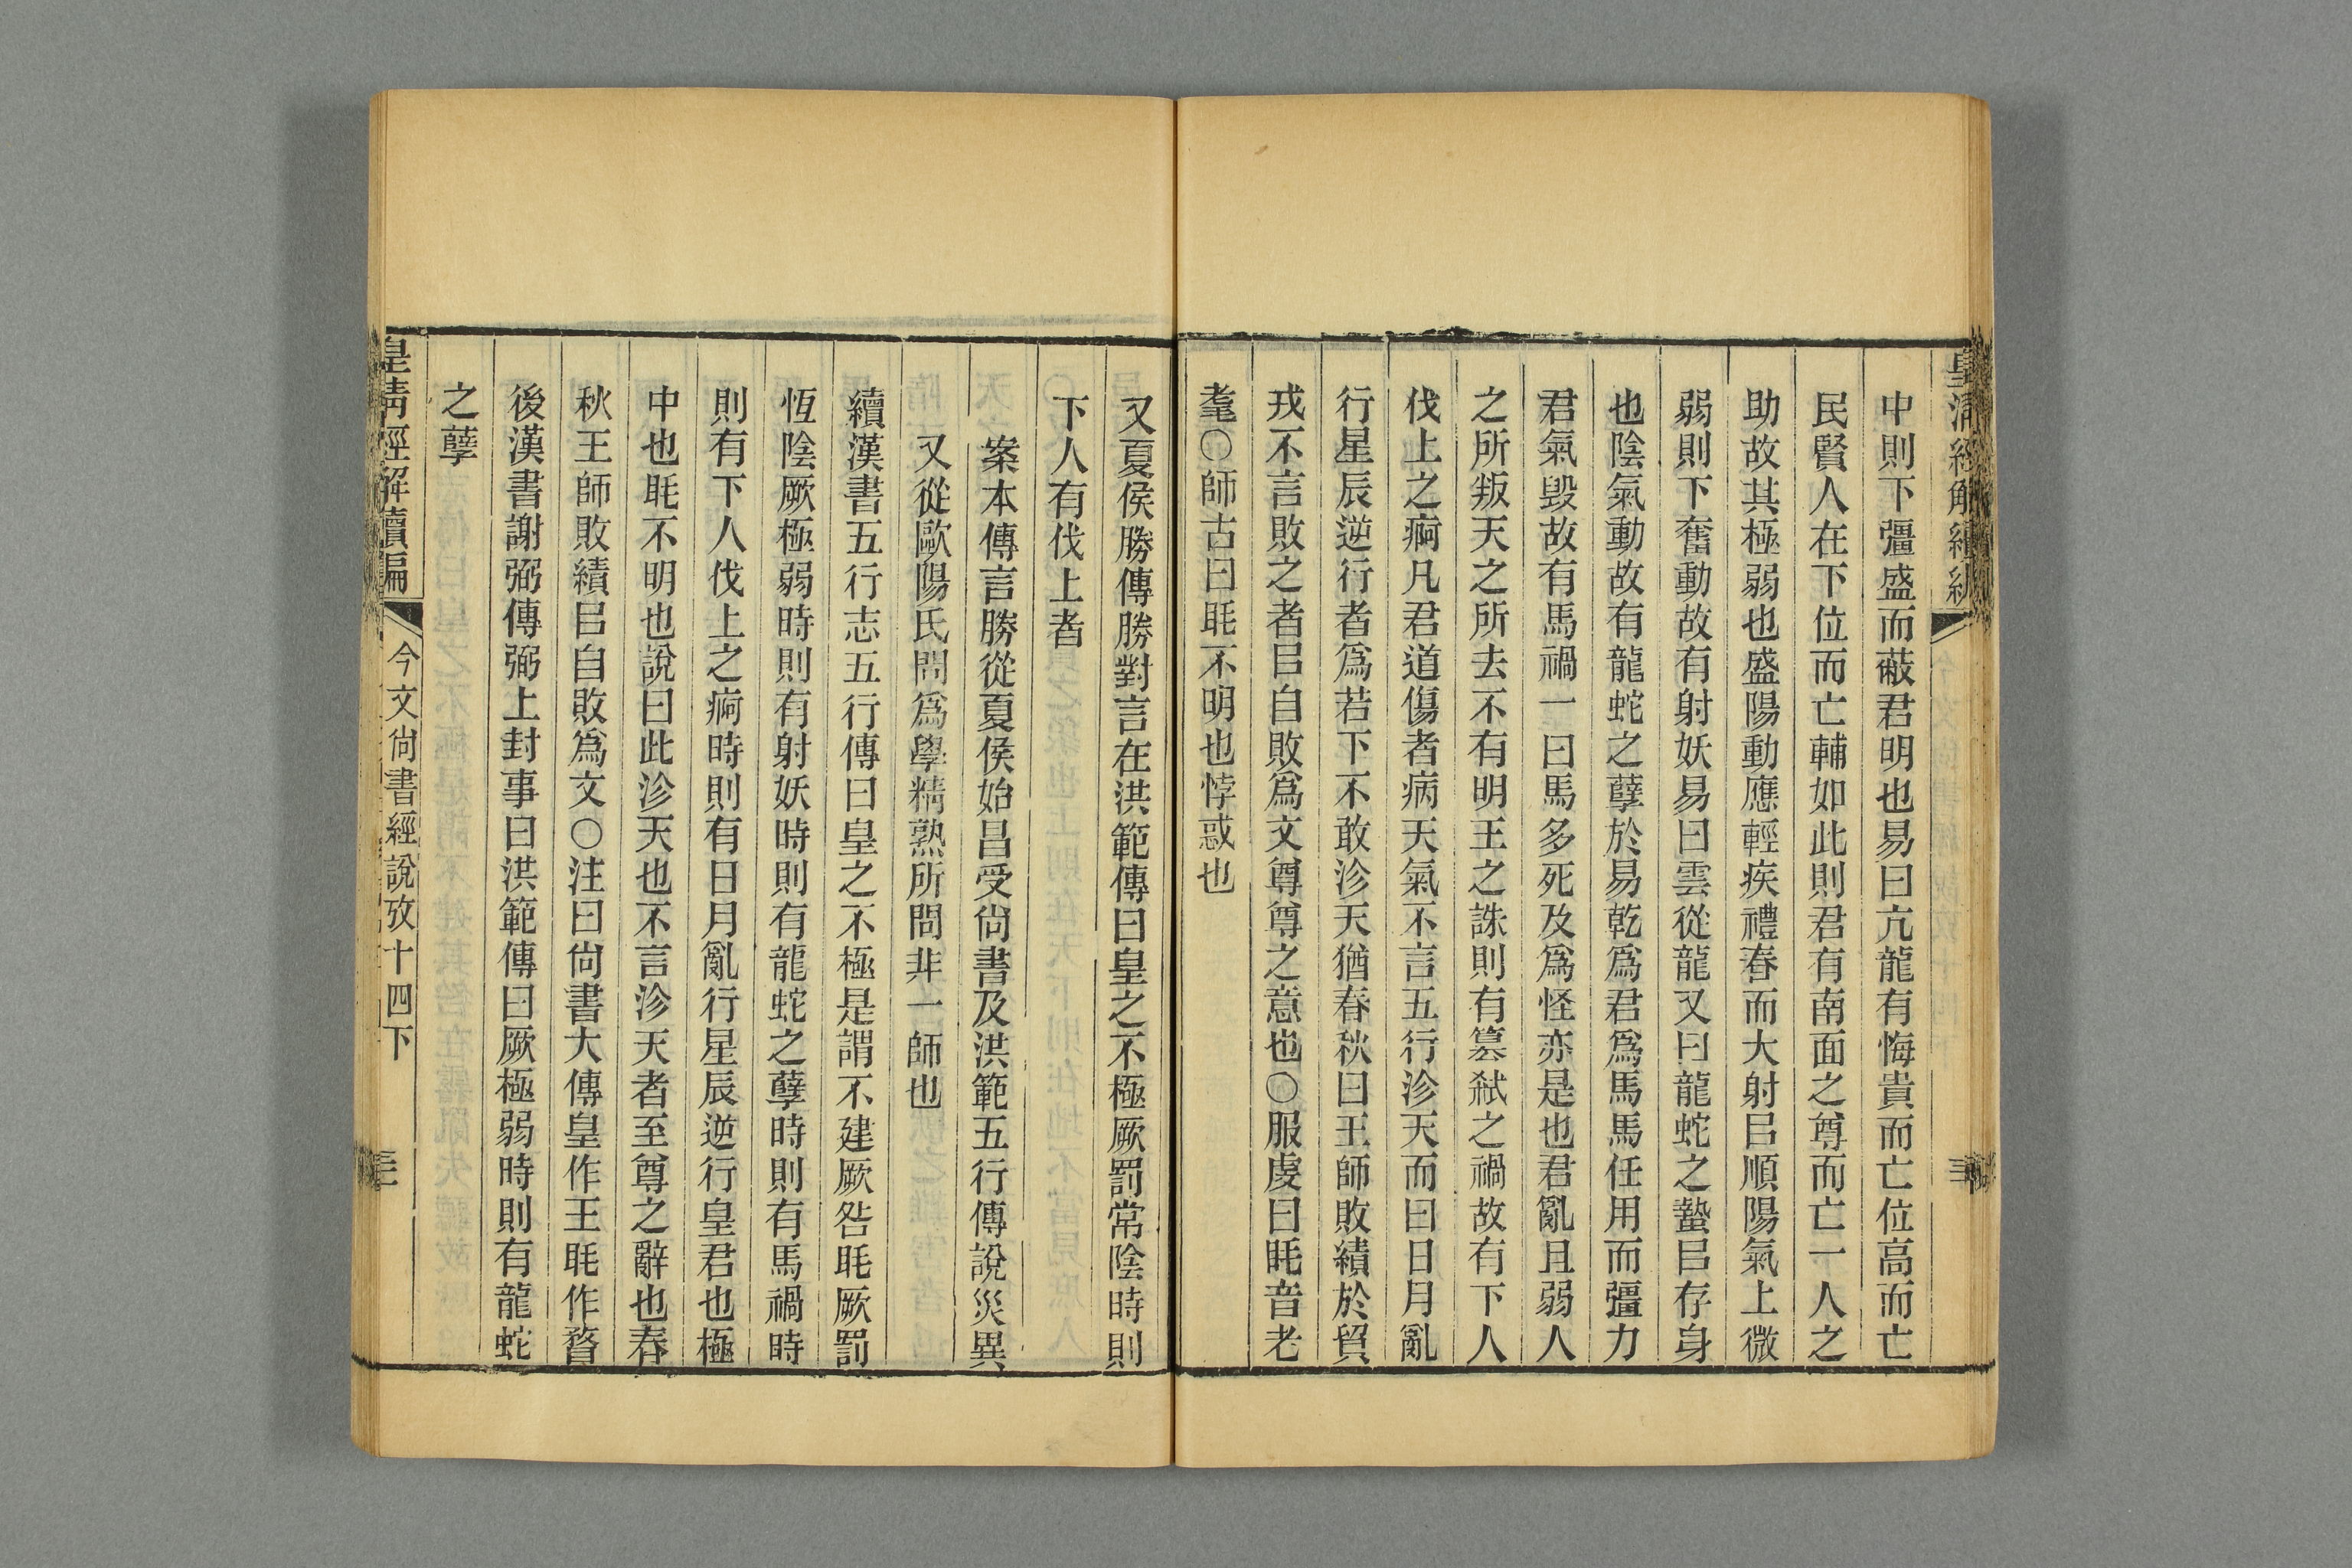 中則下彊盛而蔽君明也易曰亢龍有悔貴而亡位高而亡
民賢人在下位而亡輔如此則君有南面之尊而亡一人之
助故其極弱也盛陽動應輕疾禮春而大射㠯順陽氣上微
弱則下奮動故有射妖易曰雲從龍又曰龍蛇之蟄㠯存身
也陰氣動故有龍蛇之孽於易乾爲君爲馬馬任用而彊力
君氣毀故有馬禍一曰馬多死及爲怪亦是也君亂且弱人
之所叛天之所去不有明王之誅則有篡弑之禍故有下人
伐上之痾凡君道傷者病天氣不言五行沴天而曰日月亂
行星辰逆行者爲若下不敢沴天猶春秋曰王師敗績於貿
戎不言敗之者㠯自敗爲文尊尊之意也○服虔曰眊音老
耄○師古曰眊不明也悖惑也
又夏侯勝傳勝對言在洪範傳曰皇之不極厥罰常陰時則
下人有伐上者
案本傳言勝從夏侯始昌受尙書及洪範五行傳說災異
又從歐陽氏問爲學精熟所問非一師也
續漢書五行志五行傳曰皇之不極是謂不建厥咎眊厥罰
恆陰厥極弱時則有射妖時則有龍蛇之孽時則有馬禍時
則有下人伐上之痾時則有日月亂行星辰逆行皇君也極
中也眊不明也說曰此沴天也不言沴天者至尊之辭也春
秋王師敗績㠯自敗爲文○注曰尙書大傳皇作王眊作瞀
後漢書謝弼傳弼上封事曰洪範傳曰厥極弱時則有龍蛇
之孽
皇淸經解續編
今文尙書經說攷十四下